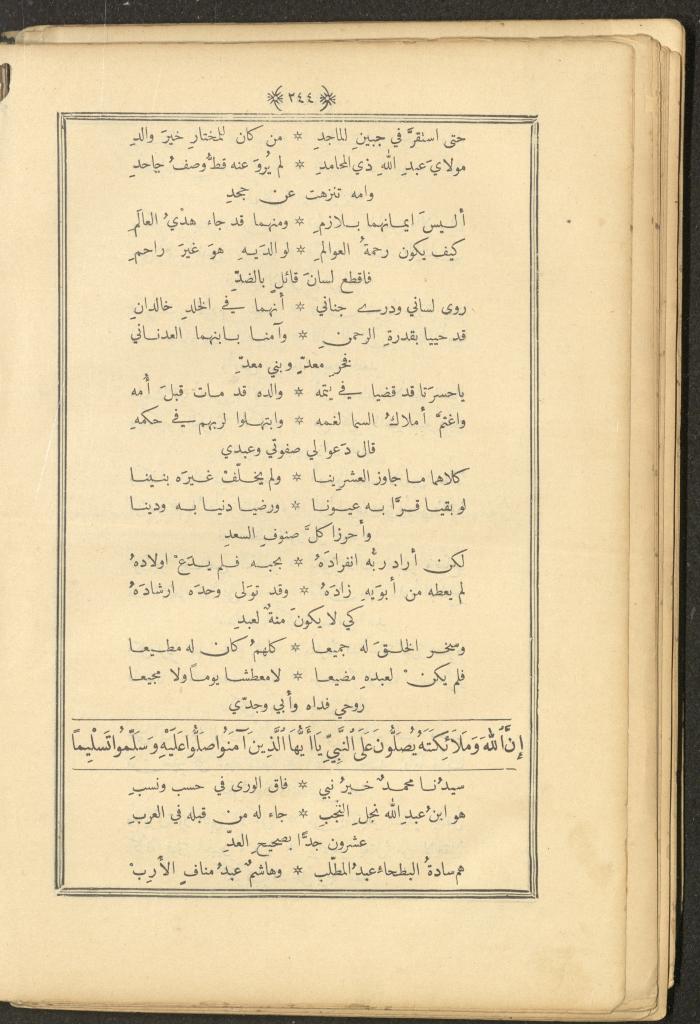 ﴿ ٢٤٤ ﴾
حتى استقرَّ في جبينِ الماجدِ * من كان للمختارِ خيرَ والدِ
مولايَ عبدِ اللهِ ذي المحامدِ * لم يُروَ عنه قطُّ وصفُ جاحدِ
وامه تنزهت عن جحدِ
أليسَ ايمانهما بلازمِ * ومنهما قد جاء هدْيُ العالمِ
كيف يكون رحمةُ العوالمِ * لوالدَيهِ هوَ غيرَ راحمِ
فاقطع لسانَ قائلٍ بالضدِّ
روى لساني ودرى جناني * أنهما في الخلدِ خالدانِ
قد حييا بقدرةِ الرحمنِ * وآمنا بابنهما العدناني
فخرِ معدٍّ وبني معدِّ
ياحسرَتا قد قضيا في يتمه * والده قد مات قبلَ أُمه
واغتمَّ أملاكُ السما لغمه * وابتهلوا لربهم في حكمهِ
قال دَعوا لي صفوتي وعبدي
كلاهما ما جاوز العشرينا * ولم يخلّفْ غيرَه بنينا
لو بقيا قرَّا به عيونا * ورضيا دنيا به ودينا
وأحرزا كلَّ صنوفِ السعدِ
لكن أراد ربُّه انفرادَهُ * بحبهِ فلم يدَعْ اولادهُ
لم يعطه من أبوَيهِ زادَهُ * وقد تولى وحدَه ارشادَهُ
كي لا يكونَ منةٌ لعبدِ
وسخر الخلقَ له جميعا * كلهمُ كان له مطيعا
فلم يكنْ لعبدهِ مضيعا * لامعطشا يوماً ولا مجيعا
روحي فداه وأبي وجدّي
إِنَّ ٱللهَ وَمَلَائِكَتَهُ يُصَلُّونَ عَلَى ٱلنَّبِيِّ يَاأَيُّهَا ٱلَّذِينَ آمَنُوا صَلُّوا عَلَيْهِ وَسَلِّمُوا تَسْلِيماً
سيدُنا محمدٌ خيرُ نبي * فاق الورى في حسبٍ ونسبِ
هو ابنُ عبدِ الله نجلِ النجبِ * جاء له من قبله في العربِ
عشرون جدًّا بصحيحِ العدِّ
هم سادةُ البطحاءِ عبدُ المطّلب * وهاشمٌ عبدُ منافٍ الأَرِبْ